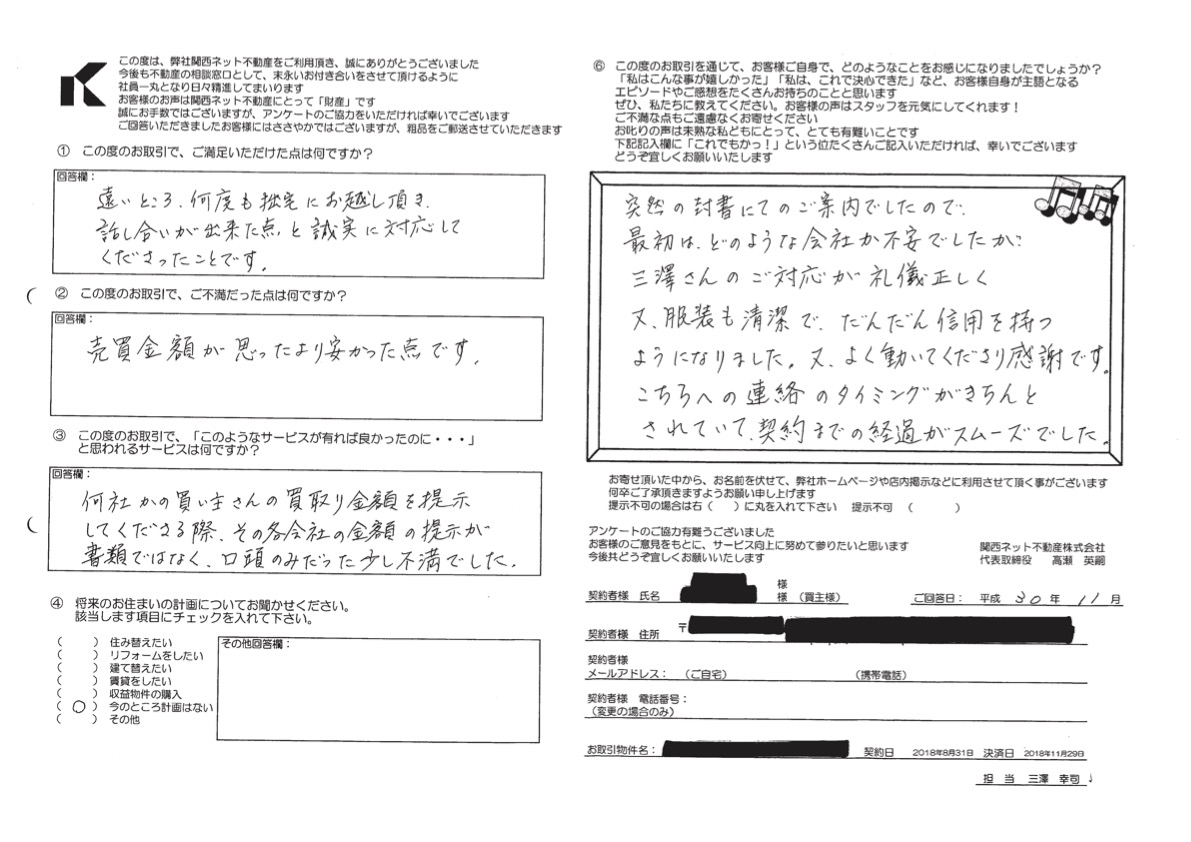 この度は、弊社関西ネット不動産をご利用頂き、誠にありがとうございました
今後も不動産の相談窓口として、末永いお付き合いをさせて頂けるように
社員一丸となり日々精進してまいります
お客様のお声は関西ネット不動産にとって「財産」です
誠にお手数ではございますが、アンケートのご協力をいただければ幸いでございます
ご回答いただきましたお客様にはささやかではございますが、粗品をご郵送させていただきます
① この度のお取引で、ご満足いただけた点は何ですか？
回答欄：
遠いところ、何度も拙宅にお越し頂き、
話し合いが出来た点と誠実に対応して
くださったことです。
② この度のお取引で、ご不満だった点は何ですか？
回答欄：
売買金額が思ったより安かった点です。
③ この度のお取引で、「このようなサービスが有れば良かったのに・・・」
と思われるサービスは何ですか？
回答欄：
何社かの買い主さんの買取り金額を提示
してくださる際、その各会社の金額の提示が
書類ではなく、口頭のみだった少し不満でした。
④ 将来のお住まいの計画についてお聞かせください。
該当します項目にチェックを入れて下さい。
（　　）住み替えたい
（　　）リフォームをしたい
（　　）建て替えたい
（　　）賃貸をしたい
（　　）収益物件の購入
（ ○ ）今のところ計画はない
（　　）その他
その他回答欄：
⑥ この度のお取引を通じて、お客様ご自身で、どのようなことをお感じになりましたでしょうか？
「私はこんな事が嬉しかった」「私は、これで決心できた」など、お客様自身が主語となる
エピソードやご感想をたくさんお持ちのことと思います
ぜひ、私たちに教えてください。お客様の声はスタッフを元気にしてくれます！
ご不満な点もご遠慮なくお寄せください
お叱りの声は未熟な私どもにとって、とても有難いことです
下記記入欄に「これでもかっ！」という位たくさんご記入いただければ、幸いでございます
どうぞ宜しくお願いいたします
突然の封書にてのご案内でしたので、
最初は、どのような会社か不安でしたが、
三澤さんのご対応が礼儀正しく
又、服装も清潔で、だんだん信用を持つ
ようになりました。又、よく動いてくださり感謝です。
こちらへの連絡のタイミングがきちんと
されていて、契約までの経過がスムーズでした。
お寄せ頂いた中から、お名前を伏せて、弊社ホームページや店内掲示などに利用させて頂く事がございます
何卒ご了承頂きますようお願い申し上げます
提示不可の場合は右（　　）に丸を入れて下さい　提示不可　（　　　）
アンケートのご協力有難うございました
お客様のご意見をもとに、サービス向上に努めて参りたいと思います
今後共どうぞ宜しくお願いいたします
関西ネット不動産株式会社
代表取締役　高瀬　英嗣
契約者様　氏名　様
様　（買主様）
ご回答日：　平成　30　年　11　月
契約者様　住所　〒
契約者様
メールアドレス：　（ご自宅）　（携帯電話）
契約者様　電話番号：
（変更の場合のみ）
お取引物件名：　契約日　2018年8月31日　決済日　2018年11月29日
担　当　三澤　幸司